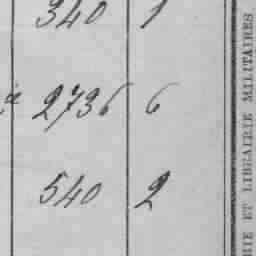 340 1
2736 6
540 2
RIE ET LIBRAIRIE MILITAIRES